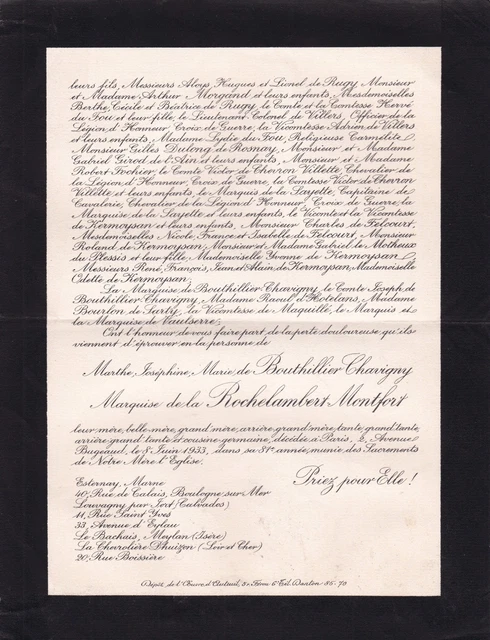 leurs fils, Messieurs Aloys Hugues et Lionel de Rugy, Monsieur
et Madame Arthur Morgand et leurs enfants, Mesdemoiselles
Berthe, Cécile et Béatrice de Rugy, le Comte et la Comtesse Hervé
du Fou et leur fille, le Lieutenant-Colonel de Villers, Officier de la
Légion d'Honneur Croix de Guerre, la Vicomtesse Adrien de Villers
et leurs enfants, Madame Lydie du Fou, Religieuse Carmélite,
Monsieur Gilles Dulong de Rosnay, Monsieur et Madame
Gabriel Girod de l'Ain et leurs enfants, Monsieur et Madame
Robert Fochier, le Comte Victor de Chevron Villette, Chevalier de
la Légion d'Honneur, Croix de Guerre, la Comtesse Victor de Chevron
Villette et leurs enfants, le Marquis de la Sayette, Capitaine de
Cavalerie, Chevalier de la Légion d'Honneur, Croix de Guerre, la
Marquise de la Sayette et leurs enfants, le Vicomte et la Vicomtesse
de Kermoysan et leurs enfants, Monsieur Charles de Felcourt,
Mesdemoiselles, Nicole, France et Isabelle de Felcourt, Monsieur
Roland de Kermoysan, Monsieur et Madame Gabriel le Motheux
du Plessis et leur fille, Mademoiselle Yvonne de Kermoysan,
Messieurs René, François, Jean et Alain de Kermoysan, Mademoiselle
Odette de Kermoysan;
La Marquise de Bouthillier Chavigny, le Comte Joseph de
Bouthillier Chavigny, Madame Raoul d'Hotelans, Madame
Bourlon de Sarty, la Vicomtesse de Maquillé, le Marquis et
la Marquise de Vaulserre;
Ont l'honneur de vous faire part de la perte douloureuse qu'ils
viennent d'éprouver en la personne de
Marthe, Joséphine, Marie de Bouthillier Chavigny
Marquise de la Rochelambert Montfort
leur mère, belle-mère, grand'mère, arrière grand'mère, tante, grand'tante,
arrière grand'tante et cousine germaine, décédée à Paris, 2, Avenue
Bugeaud, le 8 Juin 1933, dans sa 81e année, munie des Sacrements
de Notre Mère l'Eglise.
Priez pour Elle !
Esternay, Marne
40, Rue de Calais, Boulogne sur Mer
Louvagny par Jort (Calvados)
11, Rue Saint Yves
33, Avenue d'Eylau
Le Bachais, Meylan (Isère)
La Chevrolière Dhuizon (Loir et Cher)
20, Rue Boissière
Dépôt de l'Œuvre d'Auteuil, 51, Tél. Danton 86-70